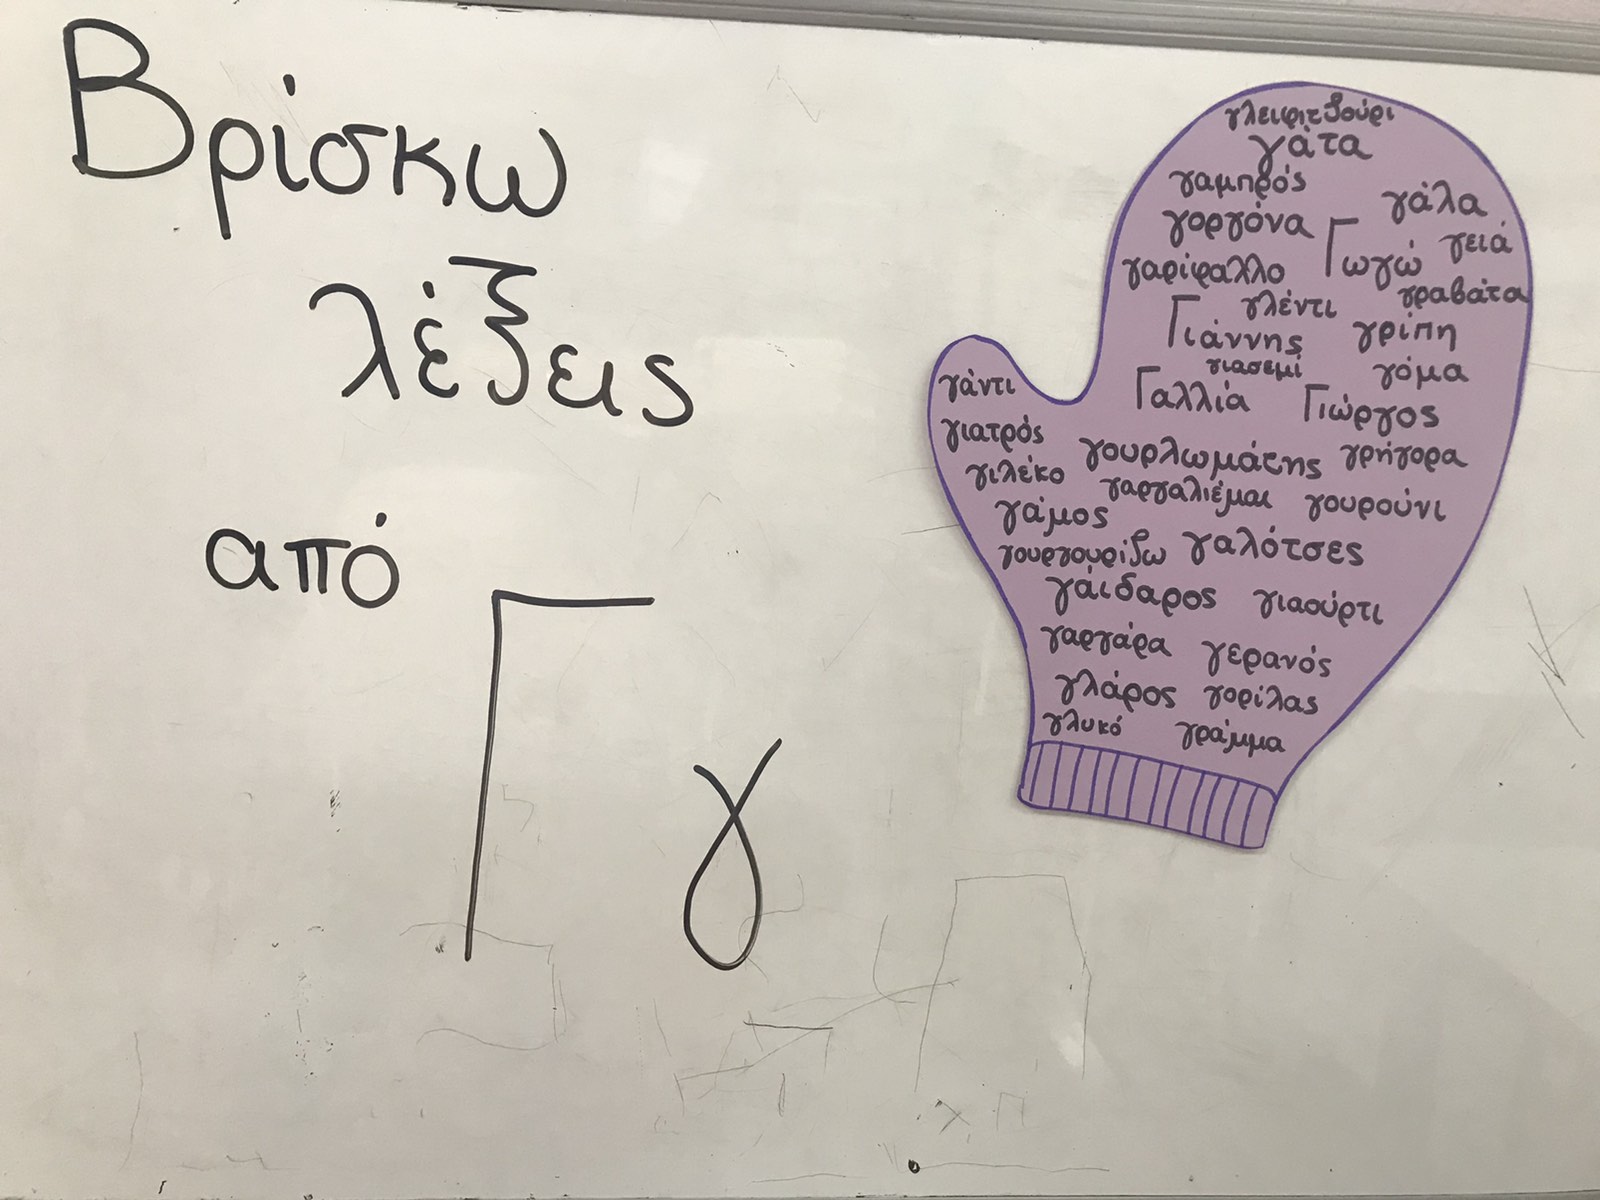 Βρίσκω
λέξεις
από
Γ γ
γλειφιτζούρι
γάτα
γαμπρός
γάλα
γοργόνα
Γωγώ γειά
γαρίφαλλο
γλέντι γραβάτα
Γιάννης γρίπη
γιασεμί
γάντι Γαλλία γόμα
Γιώργος
γιατρός γουρλωμάτης γρήγορα
γιλέκο γαργαλιέμαι γουρούνι
γάμος
γουργουρίζω γαλότσες
γάιδαρος γιαούρτι
γαργάρα γερανός
γλάρος γορίλας
γλυκό γράμμα